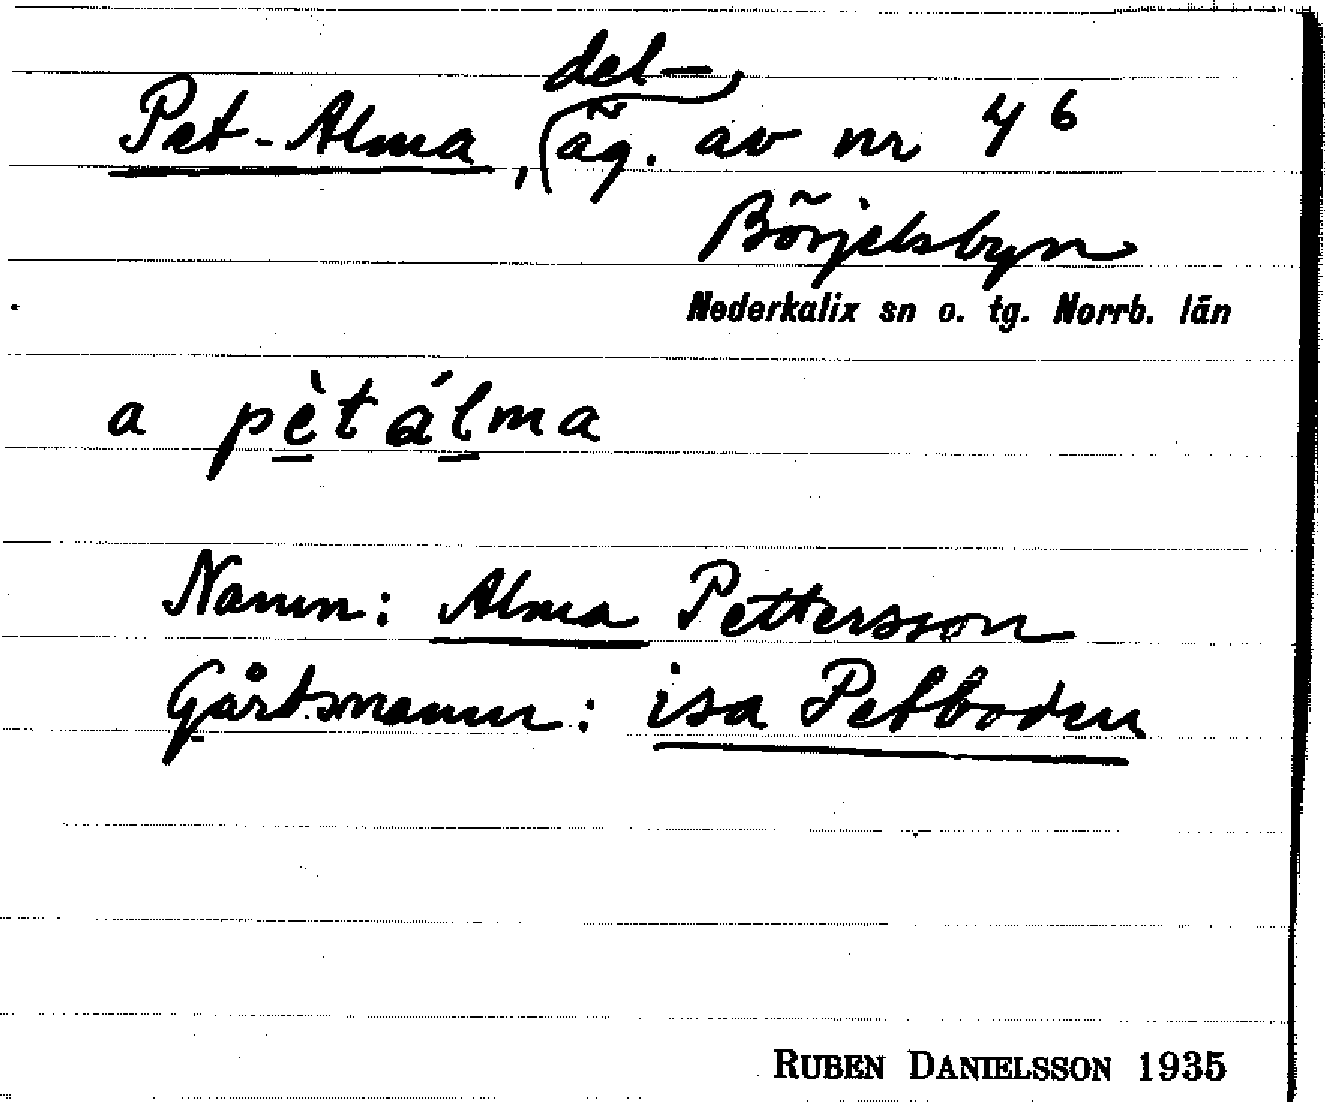 Pet-Alma, (del-)äg. av nr 4 6
Börjelsbyn
Nederkalix sn o. tg. Norrb. län
a pètálma
Namn: Alma Pettersson
Gårdsnamn: isa Petboden
RUBEN DANIELSSON 1935